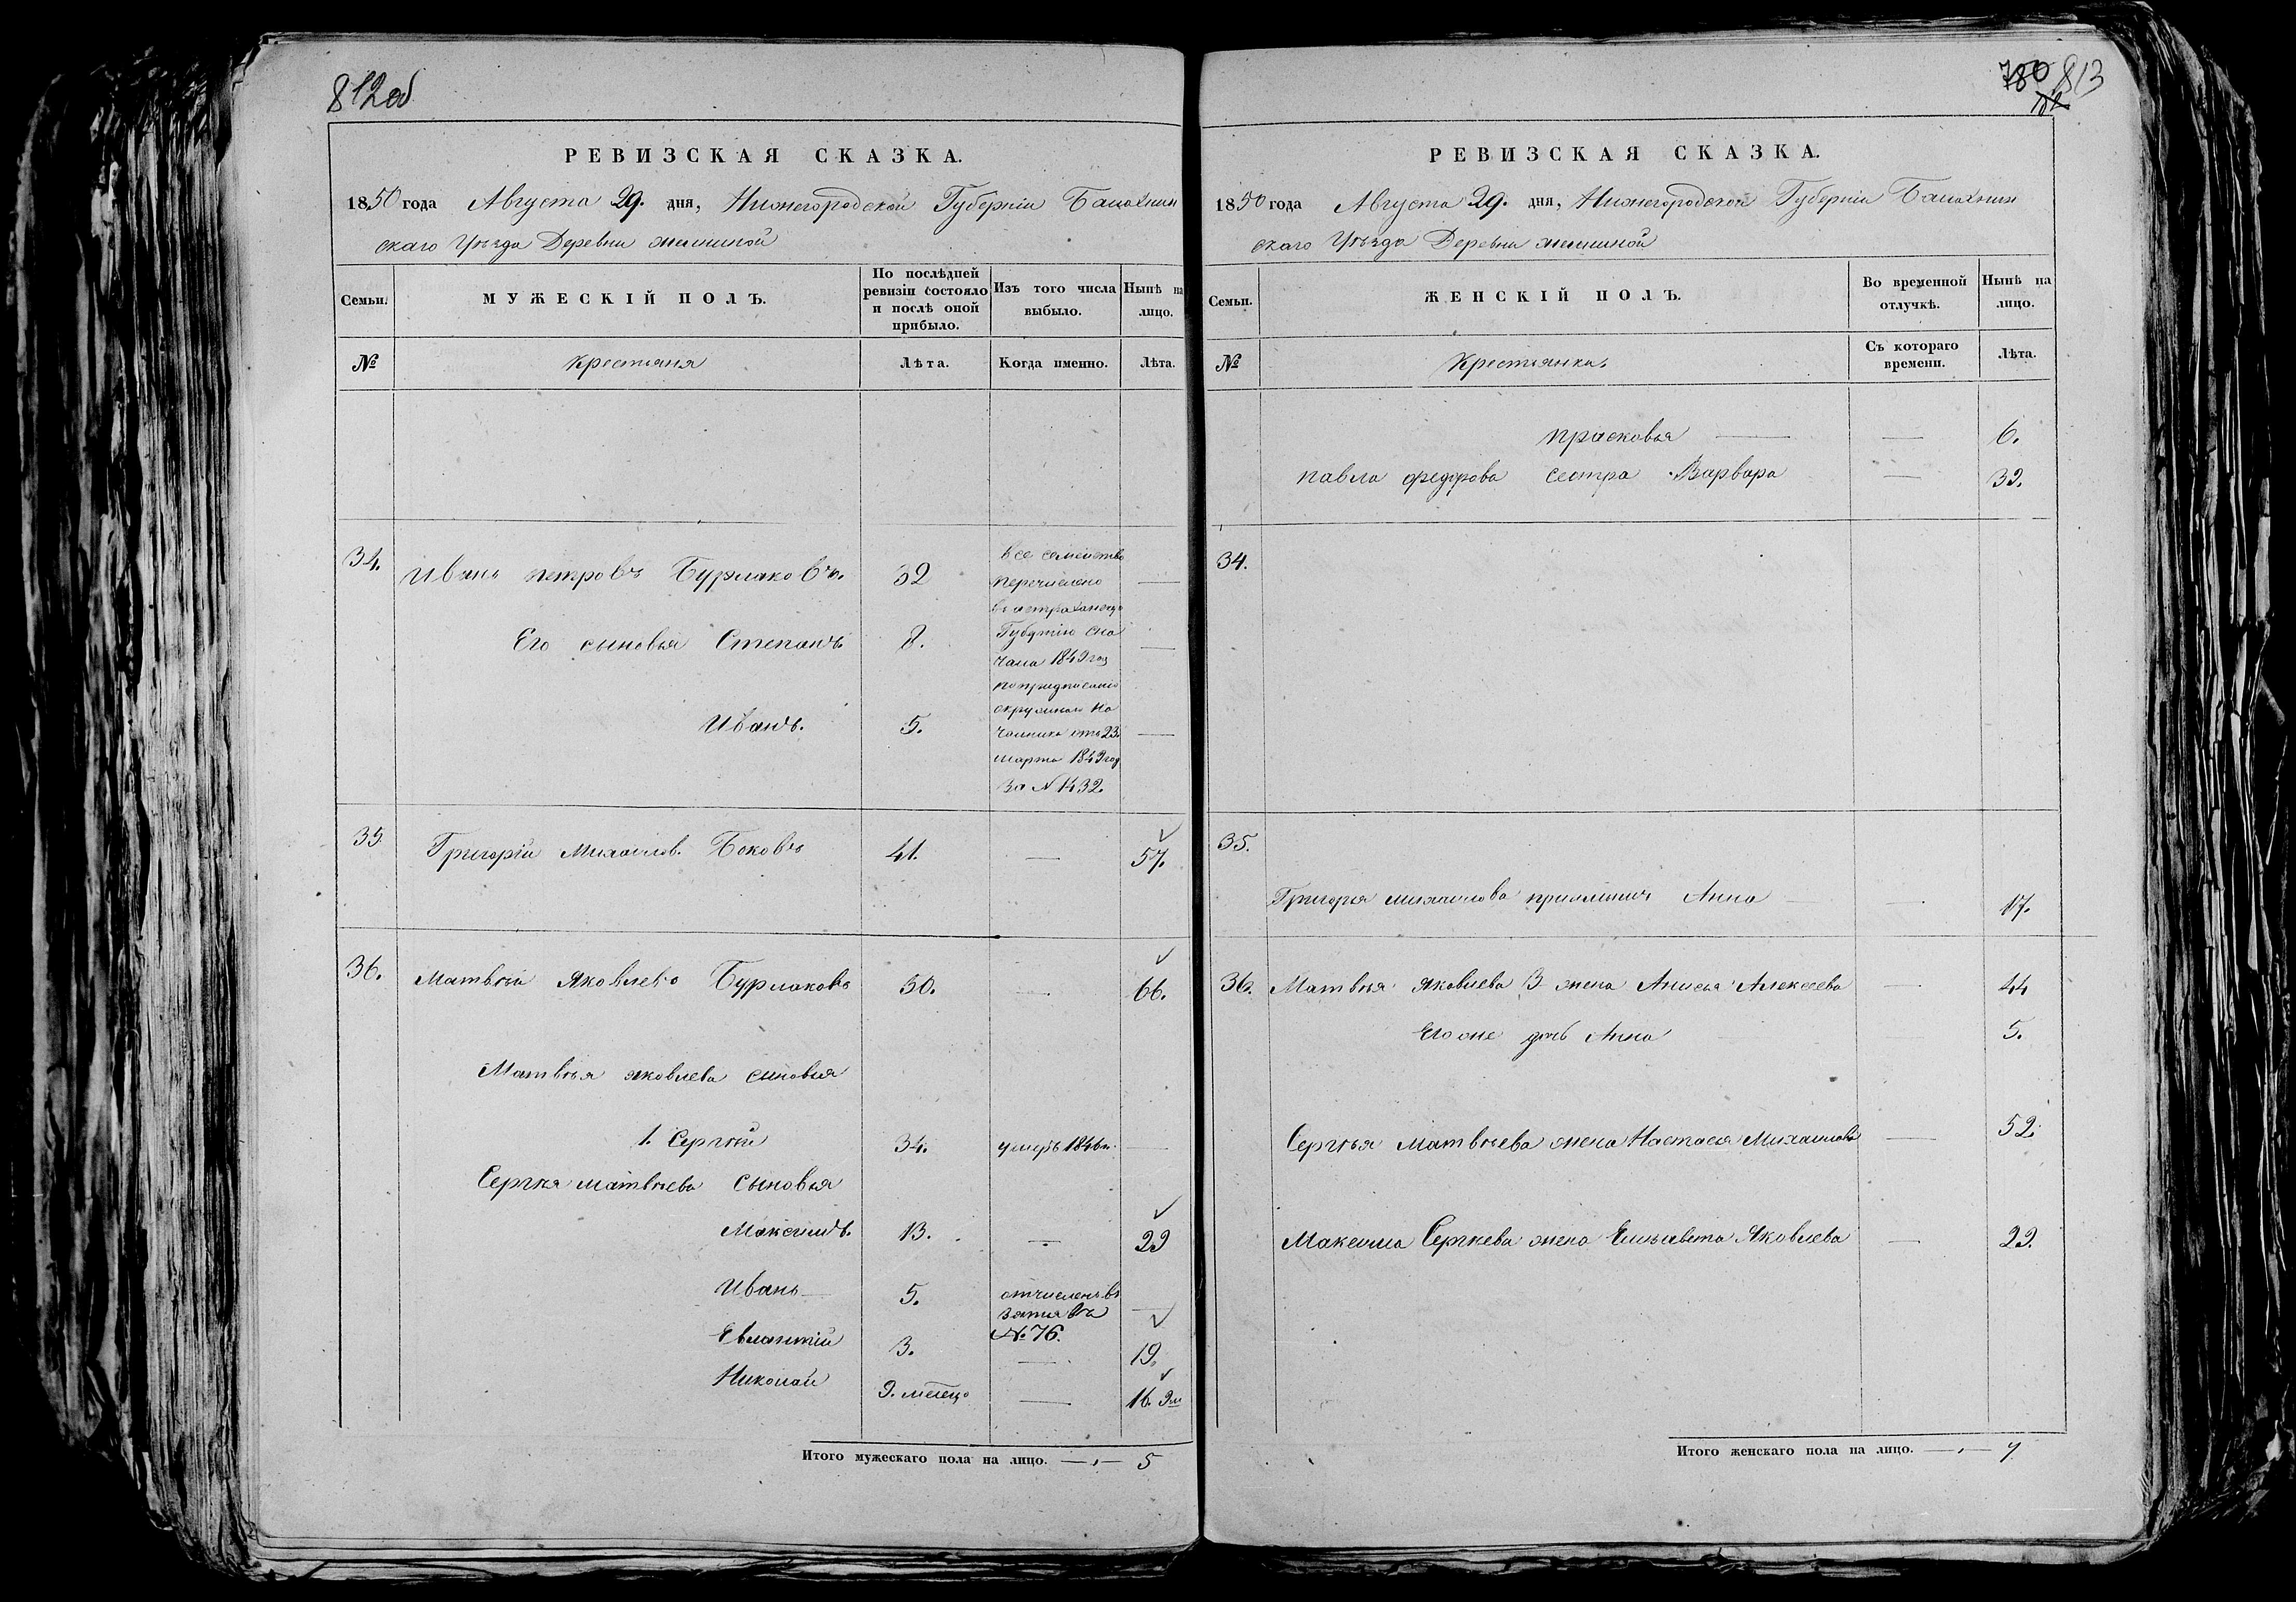 812об
РЕВИЗСКАЯ СКАЗКА.
1850 года Августа 29. дня, Нижегородской Губерніи Балахнин
скаго Уѣзда Деревни
Семьи.
МУЖЕСКІЙ ПОЛЪ.
По послѣдней ревизіи состояло и послѣ оной прибыло.
Изъ того числа выбыло.
Нынѣ на лицо.
№
Крестьяня
Лѣта.
Когда именно.
Лѣта.
34.
Иванъ Петровъ Бурлаковъ.
32
Все семейство
перечислено
въ астраханскую
Губернію сна
чала 1849 год
по предписанію
окружнаго на
чальника отъ 23.
марта 1849 год
за N 1432.
Его сыновья Степанъ
8.
Иванъ.
5.
35
Григорій Михайлов. Боковъ
41.
57.
36.
Матвѣй Яковлевъ Бурлаковъ
50.
66.
Матвѣя Яковлева сыновья
1. Сергѣй
34.
умеръ 1846 г.
Сергѣя Матвѣева сыновья
Максимъ.
13.
29
Иванъ
5.
отчисленъ въ
зятья въ
№ 76.
Евлантій
3.
19.
Николай
9. месецъ
16. 9 м
Итого мужескаго пола на лицо.
5
780 813
РЕВИЗСКАЯ СКАЗКА.
1850 года Августа 29. дня, Нижегородской Губерніи Балахнин
скаго Уѣзда Деревни
Семьи.
ЖЕНСКІЙ ПОЛЪ.
Во временной отлучкѣ.
Нынѣ на лицо.
№
Крестьянки.
Съ котораго времени.
Лѣта.
Прасковья
6.
Павла Федорова сестра Варвара
39.
34.
35.
Григорья Михайлова Анна
17.
36.
Матвѣя Яковлева 3 жена Анисья Алексеева
44
Его же дочь Анна
5.
Сергѣя Матвѣева жена Настасья Михайлова
52.
Максима Сергѣева жена Елизавета Яковлева
29.
Итого женскаго пола на лицо.
7